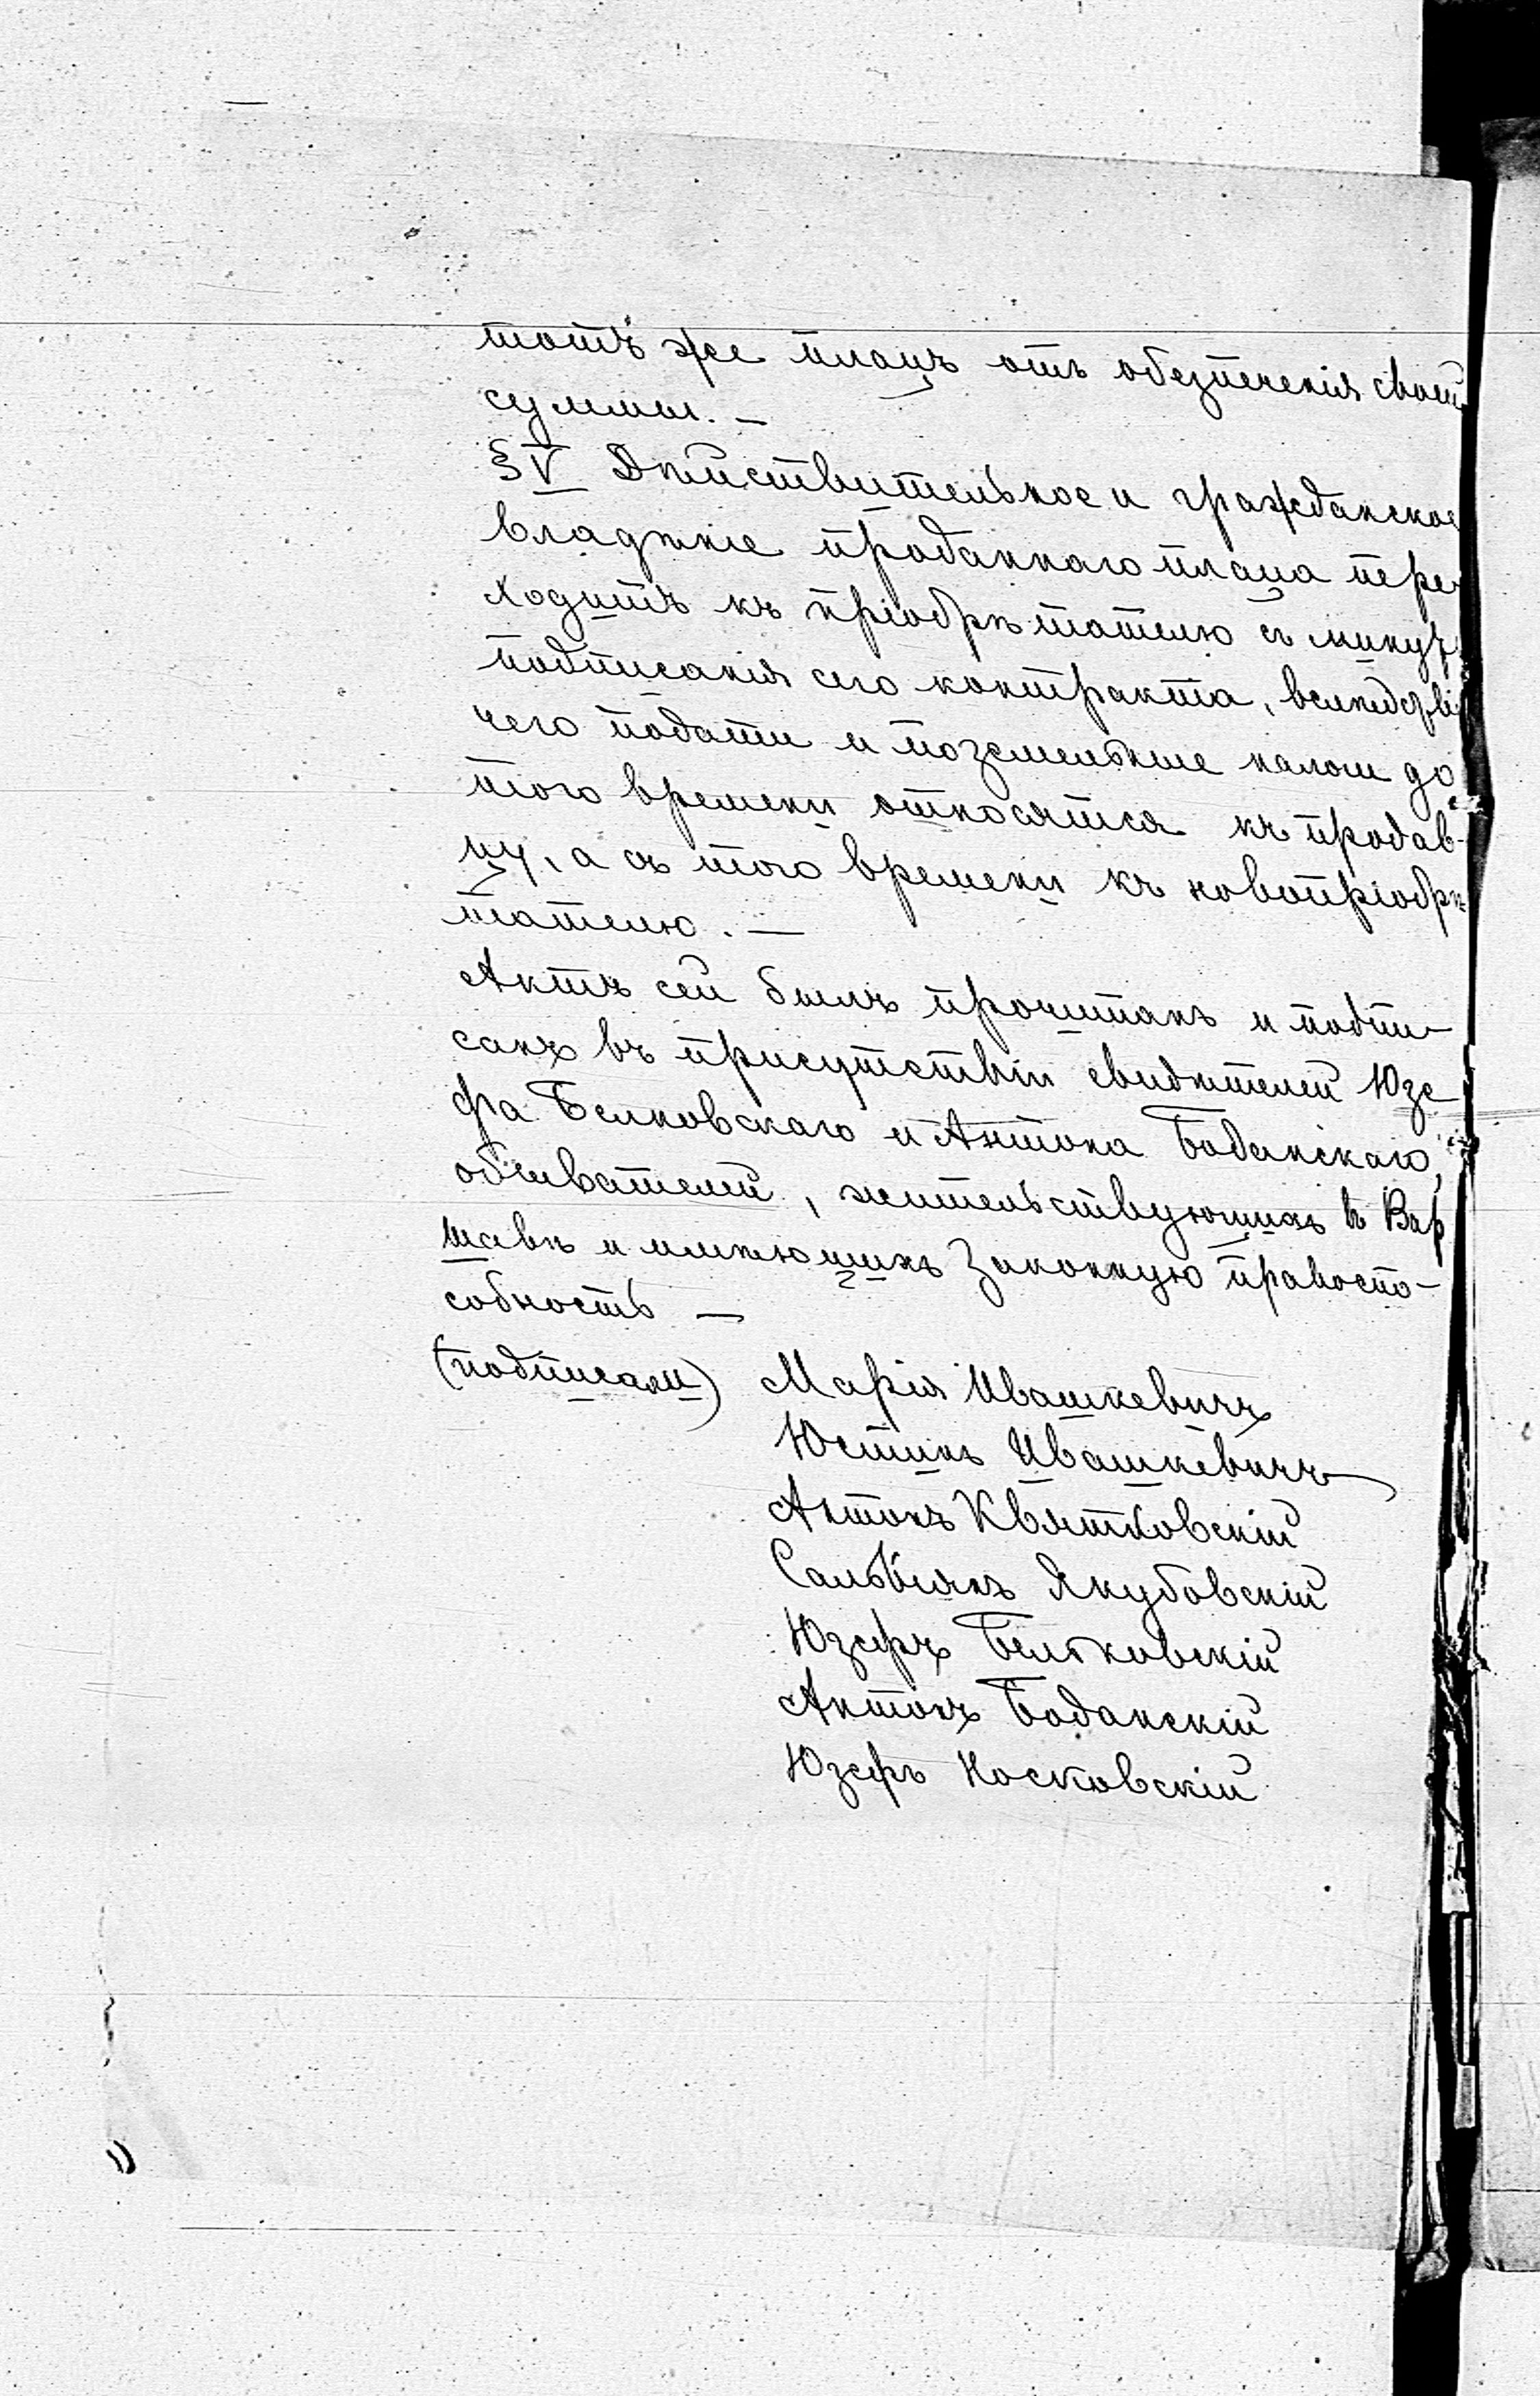 тотъ же плацъ отъ обезпеченія своей
суммы. —
§ V Дѣйствительное и гражданское
владѣніе проданнаго плаца пере-
ходитъ къ пріобрѣтателю съ минуты
подписанія сего контракта, вслѣдствіе
чего подати и поземельные налоги до
того времени относятся къ продав-
цу, а съ того времени къ новопріобрѣ-
тателю. —
Актъ сей былъ прочитанъ и подпи-
санъ въ присутствіи свидѣтелей Юзе
фа Белковскаго и Антона Боданскаго,
обывателей, жительствующихъ въ Вар
шавѣ и имѣющихъ законную правоспо-
собность —
(подписали) Марія Ивашкевичъ
Юстинъ Ивашкевичъ
Антонъ Квятковскій
Сальвіянъ Якубовскій
Юзефъ Бельковскій
Антонъ Боданскій
Юзефъ Носковскій